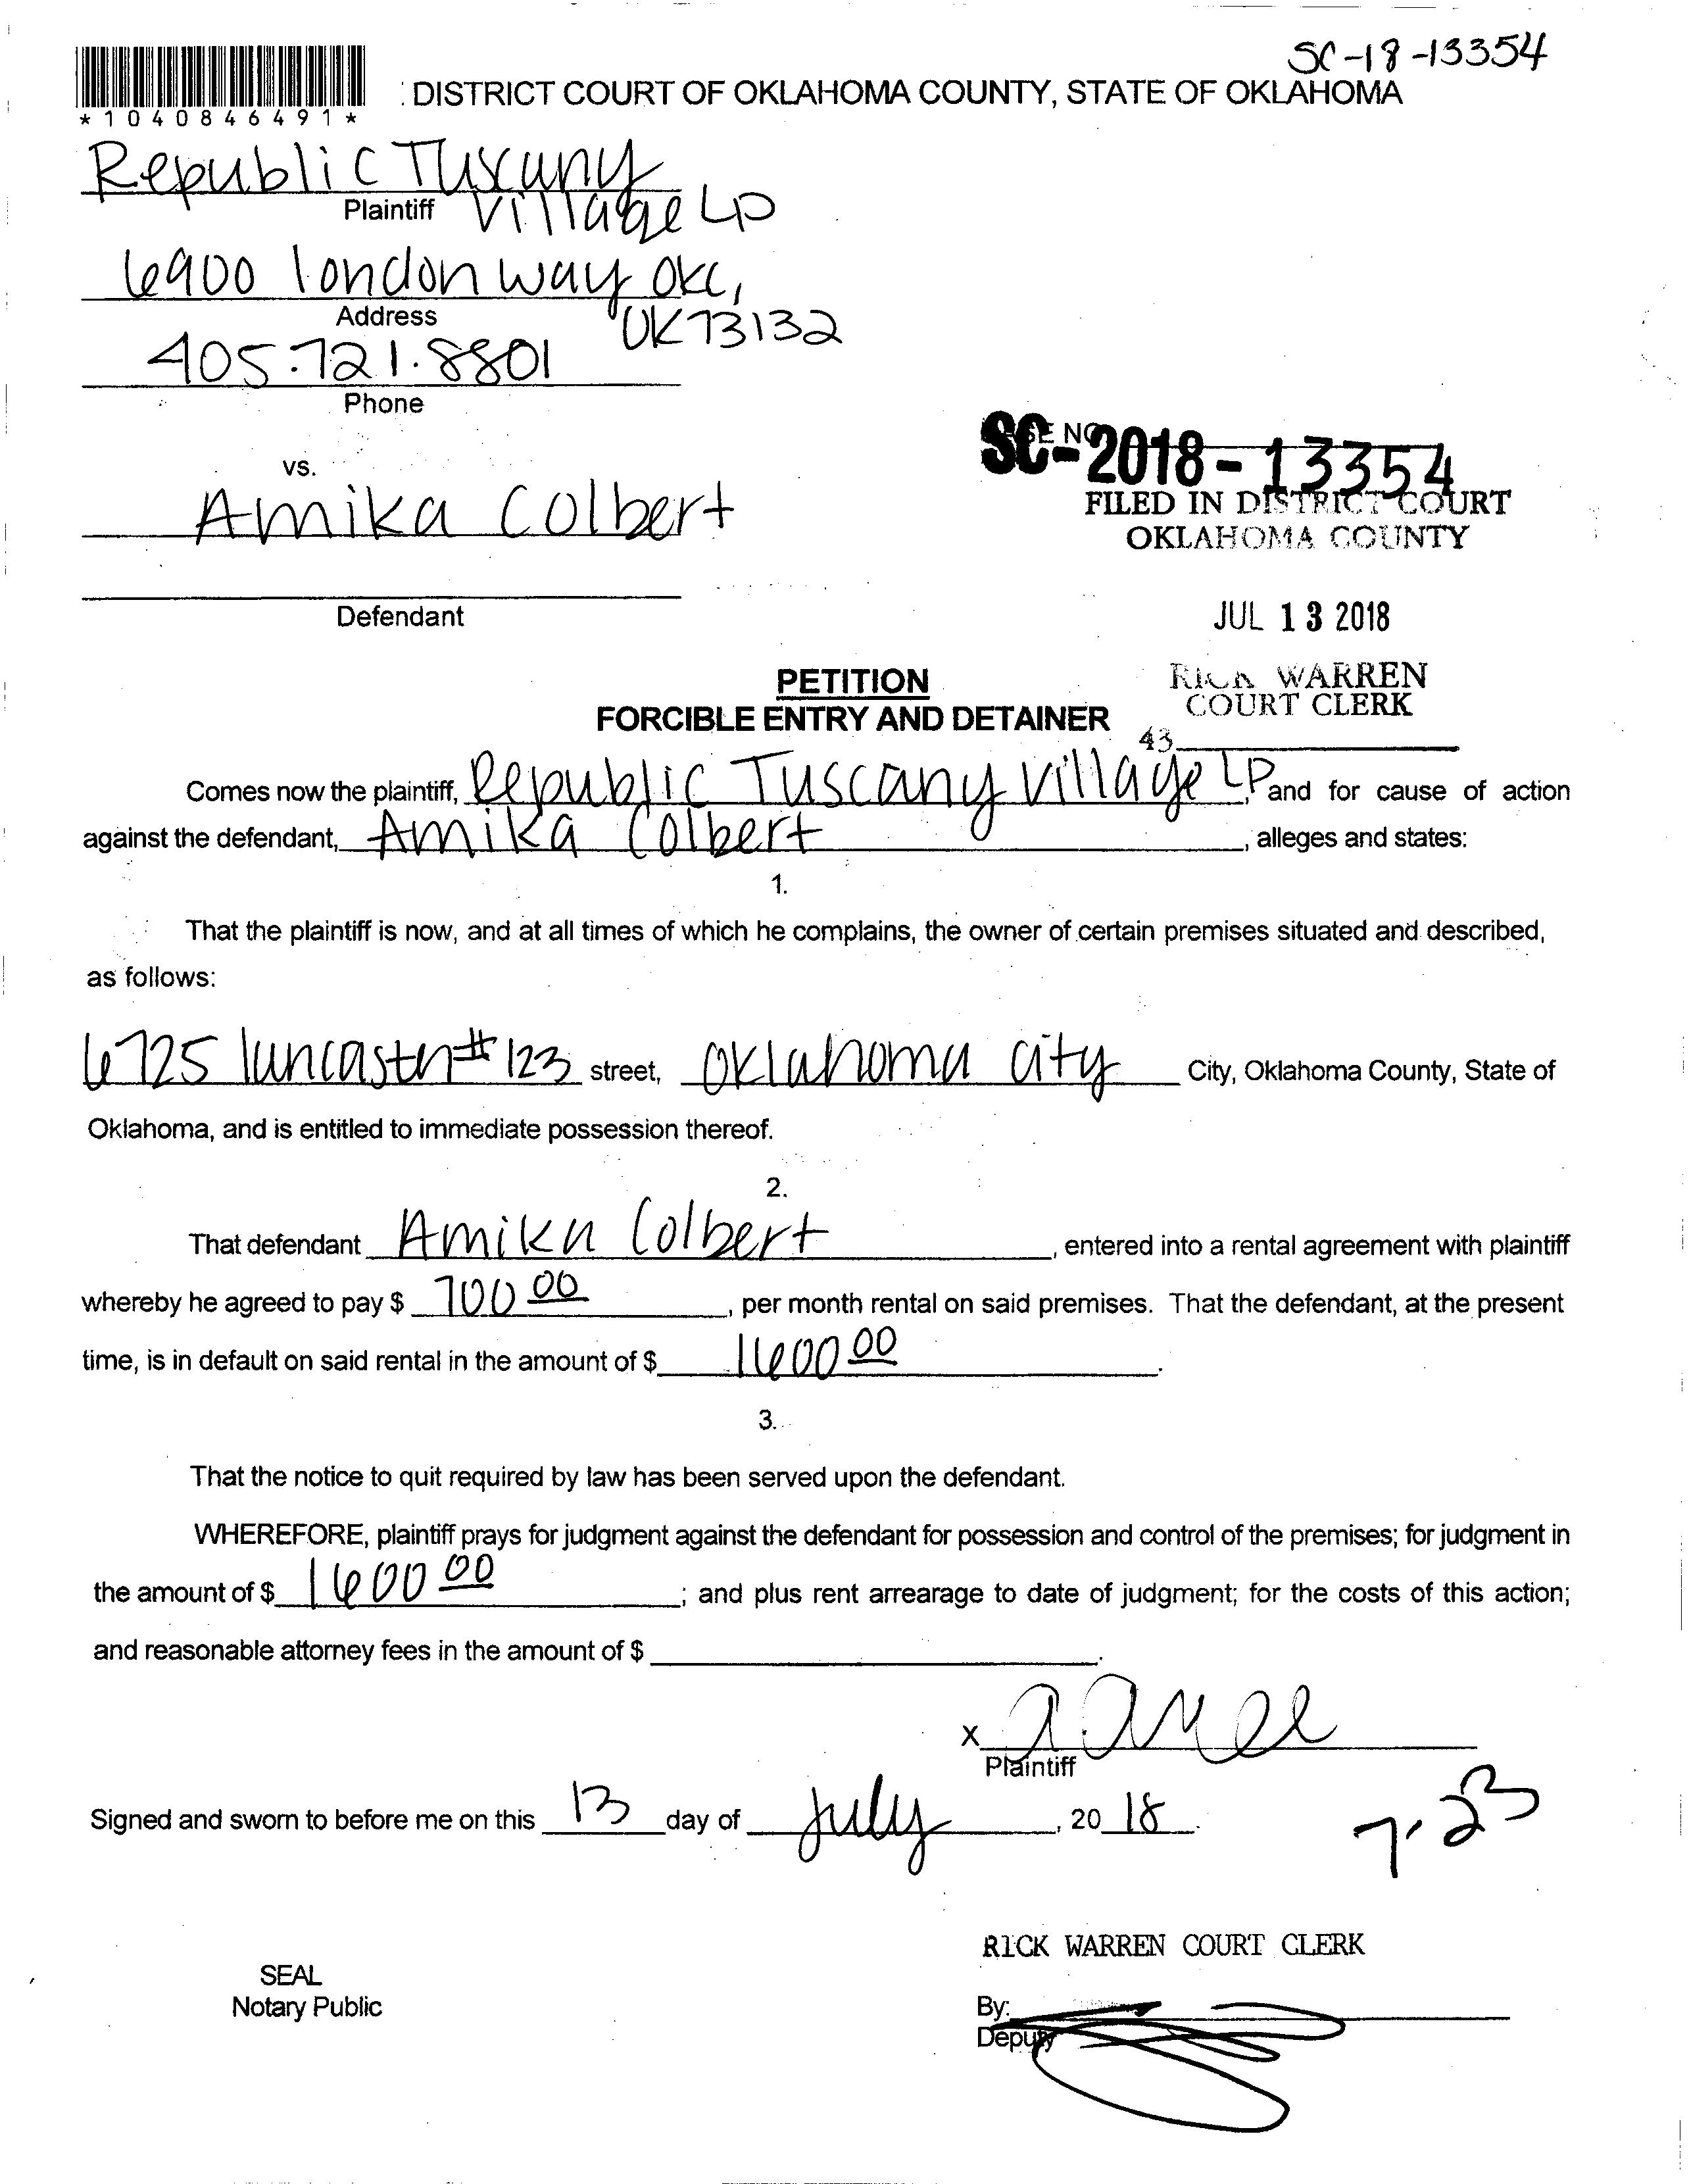 SC-18-13354
DISTRICT COURT OF OKLAHOMA COUNTY, STATE OF OKLAHOMA
*1040846491*
Republic Tuscany
Plaintiff Village LP
6900 london way OKC,
Address OK 73132
405.721.8801
Phone
SC-2018-13354
vs.
Amika Colbert
FILED IN DISTRICT COURT
OKLAHOMA COUNTY
Defendant
JUL 13 2018
PETITION
RICK WARREN
COURT CLERK
FORCIBLE ENTRY AND DETAINER
43
Comes now the plaintiff, Republic Tuscany Village LP, and for cause of action
against the defendant, Amika Colbert, alleges and states:
1.
That the plaintiff is now, and at all times of which he complains, the owner of certain premises situated and described,
as follows:
6725 lancaster #123 street, Oklahoma City City, Oklahoma County, State of
Oklahoma, and is entitled to immediate possession thereof.
2.
That defendant Amika Colbert, entered into a rental agreement with plaintiff
whereby he agreed to pay $ 700 00, per month rental on said premises. That the defendant, at the present
time, is in default on said rental in the amount of $ 1600 00.
3.
That the notice to quit required by law has been served upon the defendant.
WHEREFORE, plaintiff prays for judgment against the defendant for possession and control of the premises; for judgment in
the amount of $ 1600 00; and plus rent arrearage to date of judgment; for the costs of this action;
and reasonable attorney fees in the amount of $
X
Plaintiff
Signed and sworn to before me on this 13 day of July, 20 18.
7.23
RICK WARREN COURT CLERK
SEAL
Notary Public
By:
Deputy